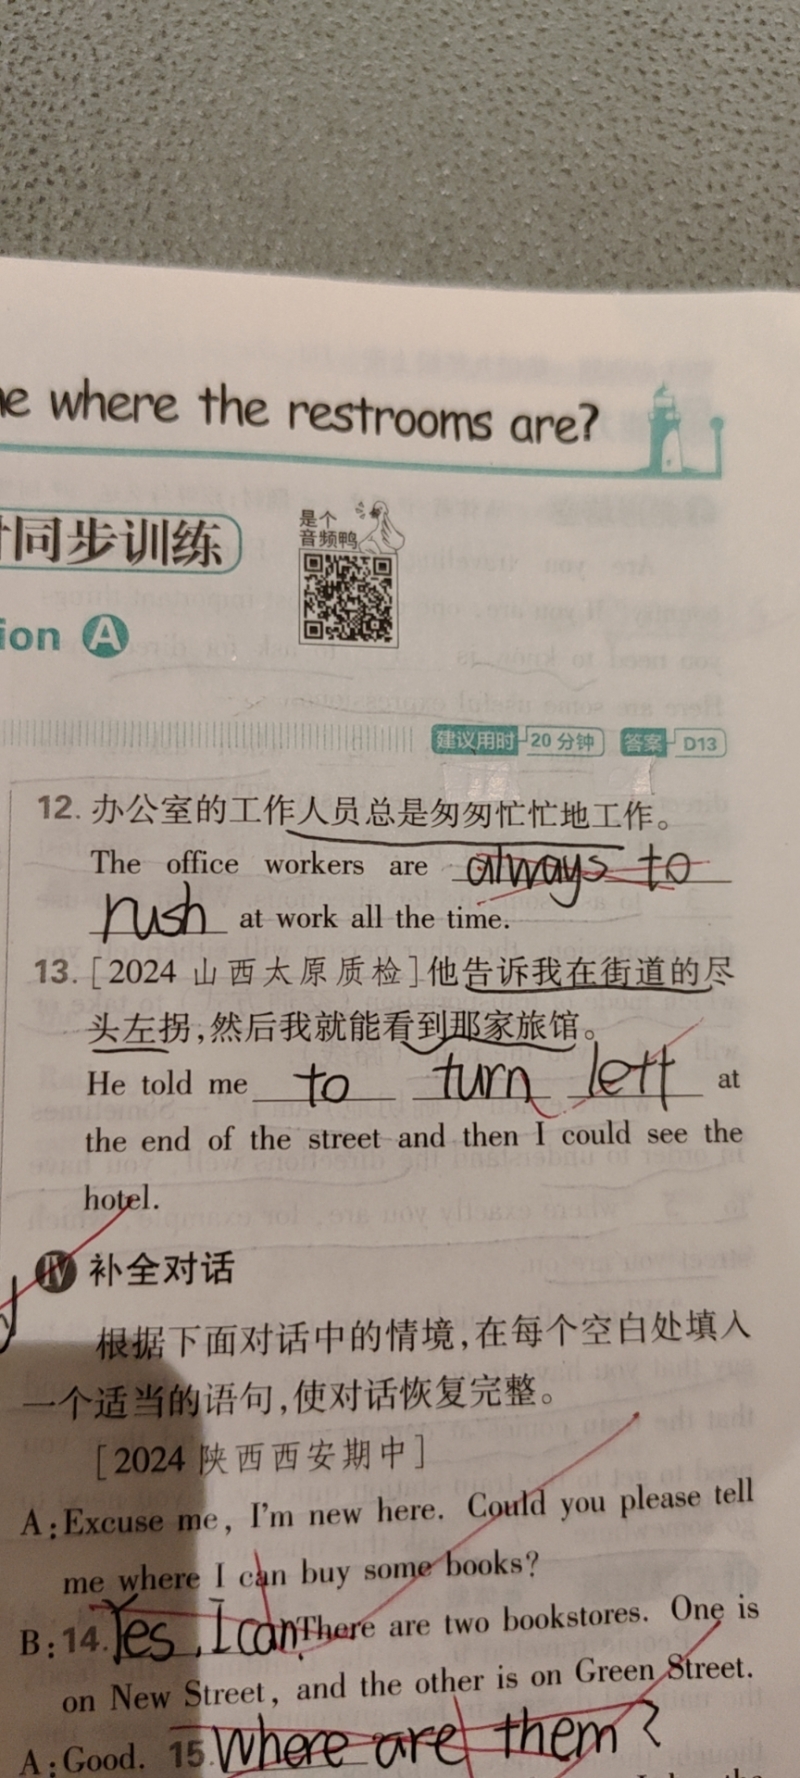 e where the restrooms are?
同步训练
是个
音频鸭
ion A
建议用时 20 分钟 答案 D13
12. 办公室的工作人员总是匆匆忙忙地工作。
The office workers are always to
rush at work all the time.
13. [2024 山西太原质检]他告诉我在街道的尽
头左拐,然后我就能看到那家旅馆。
He told me to turn left at
the end of the street and then I could see the
hotel.
Ⅳ 补全对话
根据下面对话中的情境,在每个空白处填入
一个适当的语句,使对话恢复完整。
[2024 陕西西安期中]
A: Excuse me, I'm new here. Could you please tell
me where I can buy some books?
B: 14. Yes, I can. There are two bookstores. One is
on New Street, and the other is on Green Street.
A: Good. 15. Where are them?